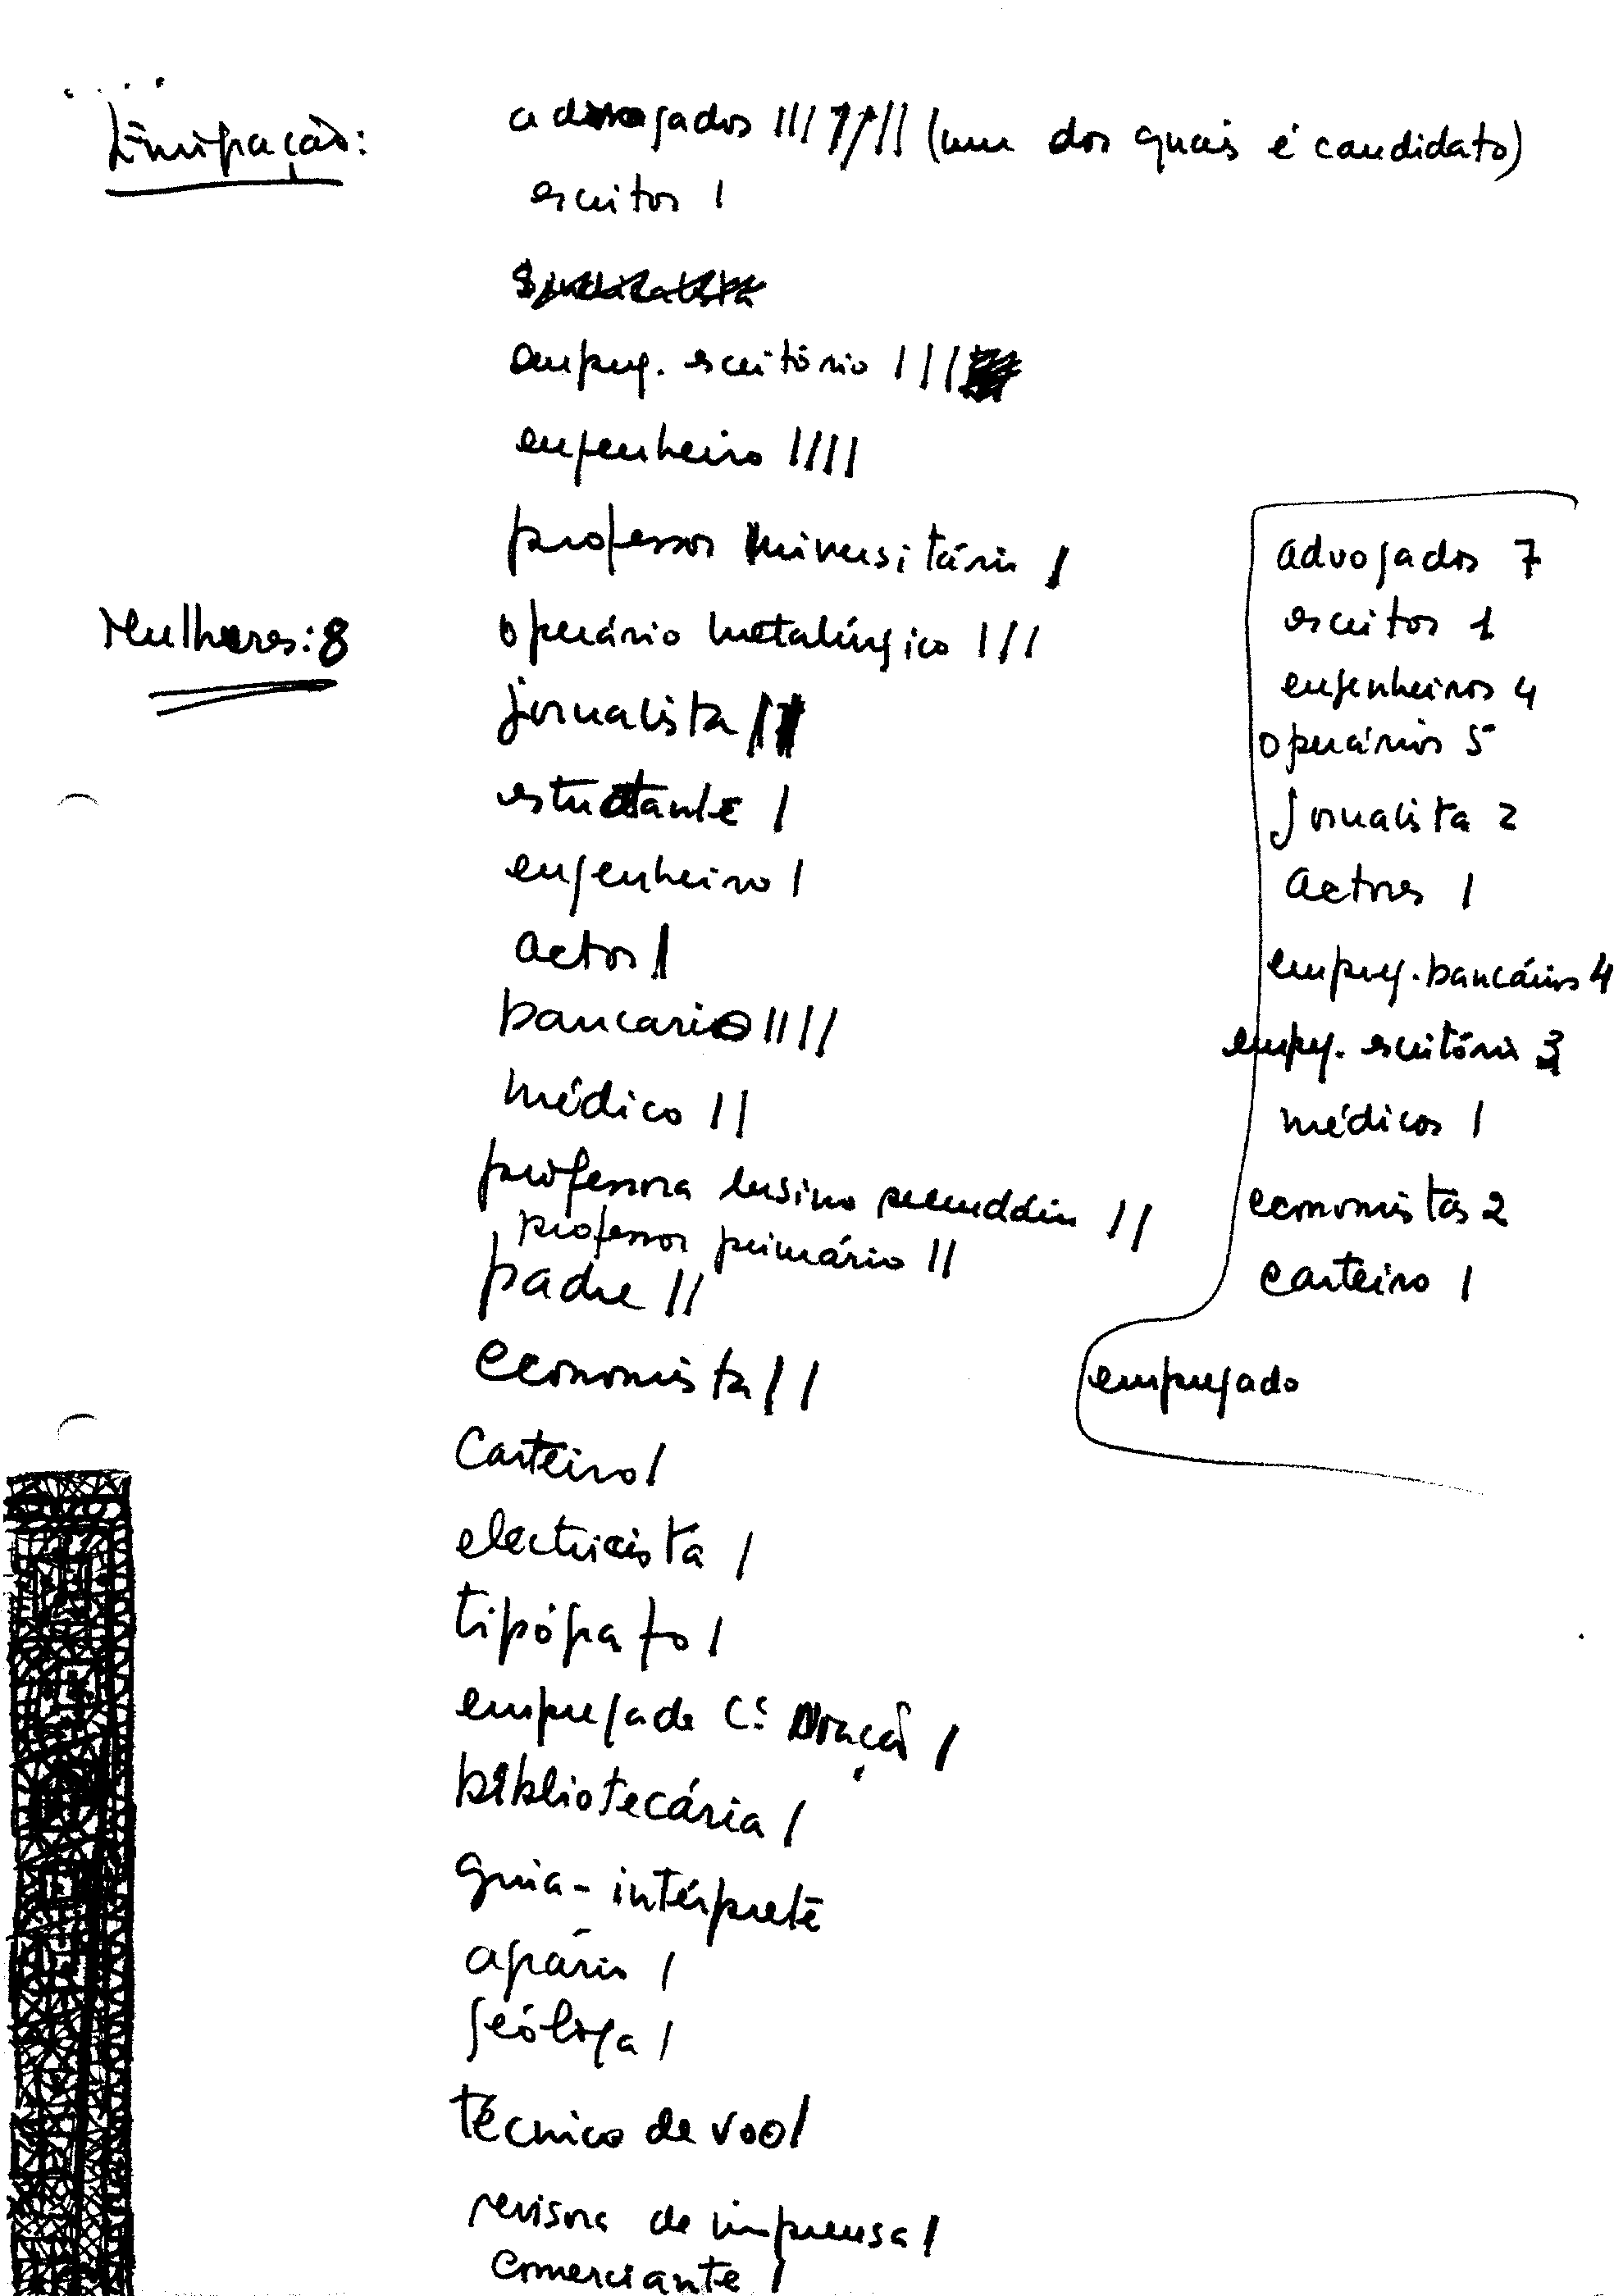 Emigração:
advogados ||| |||| (um dos quais é candidato)
escritor |
empreg. escritório |||
engenheiro ||||
professor universitário |
Mulheres: 8
operário metalúrgico |||
jornalista ||
estudante |
engenheiro |
actor |
bancario ||||
médico ||
professora ensino secundário ||
professor primário ||
padre ||
economista ||
Carteiro |
electricista |
tipógrafo |
empregade Cª |
bibliotecária |
guia-intérprete
agrário |
geóloga |
técnico de voo |
revisora de imprensa |
comerciante |
advogados 7
escritor 1
engenheiros 4
operários 5
Jornalista 2
actores 1
empreg. bancários 4
empreg. escritório 3
médicos 1
economistas 2
carteiro 1
empregado